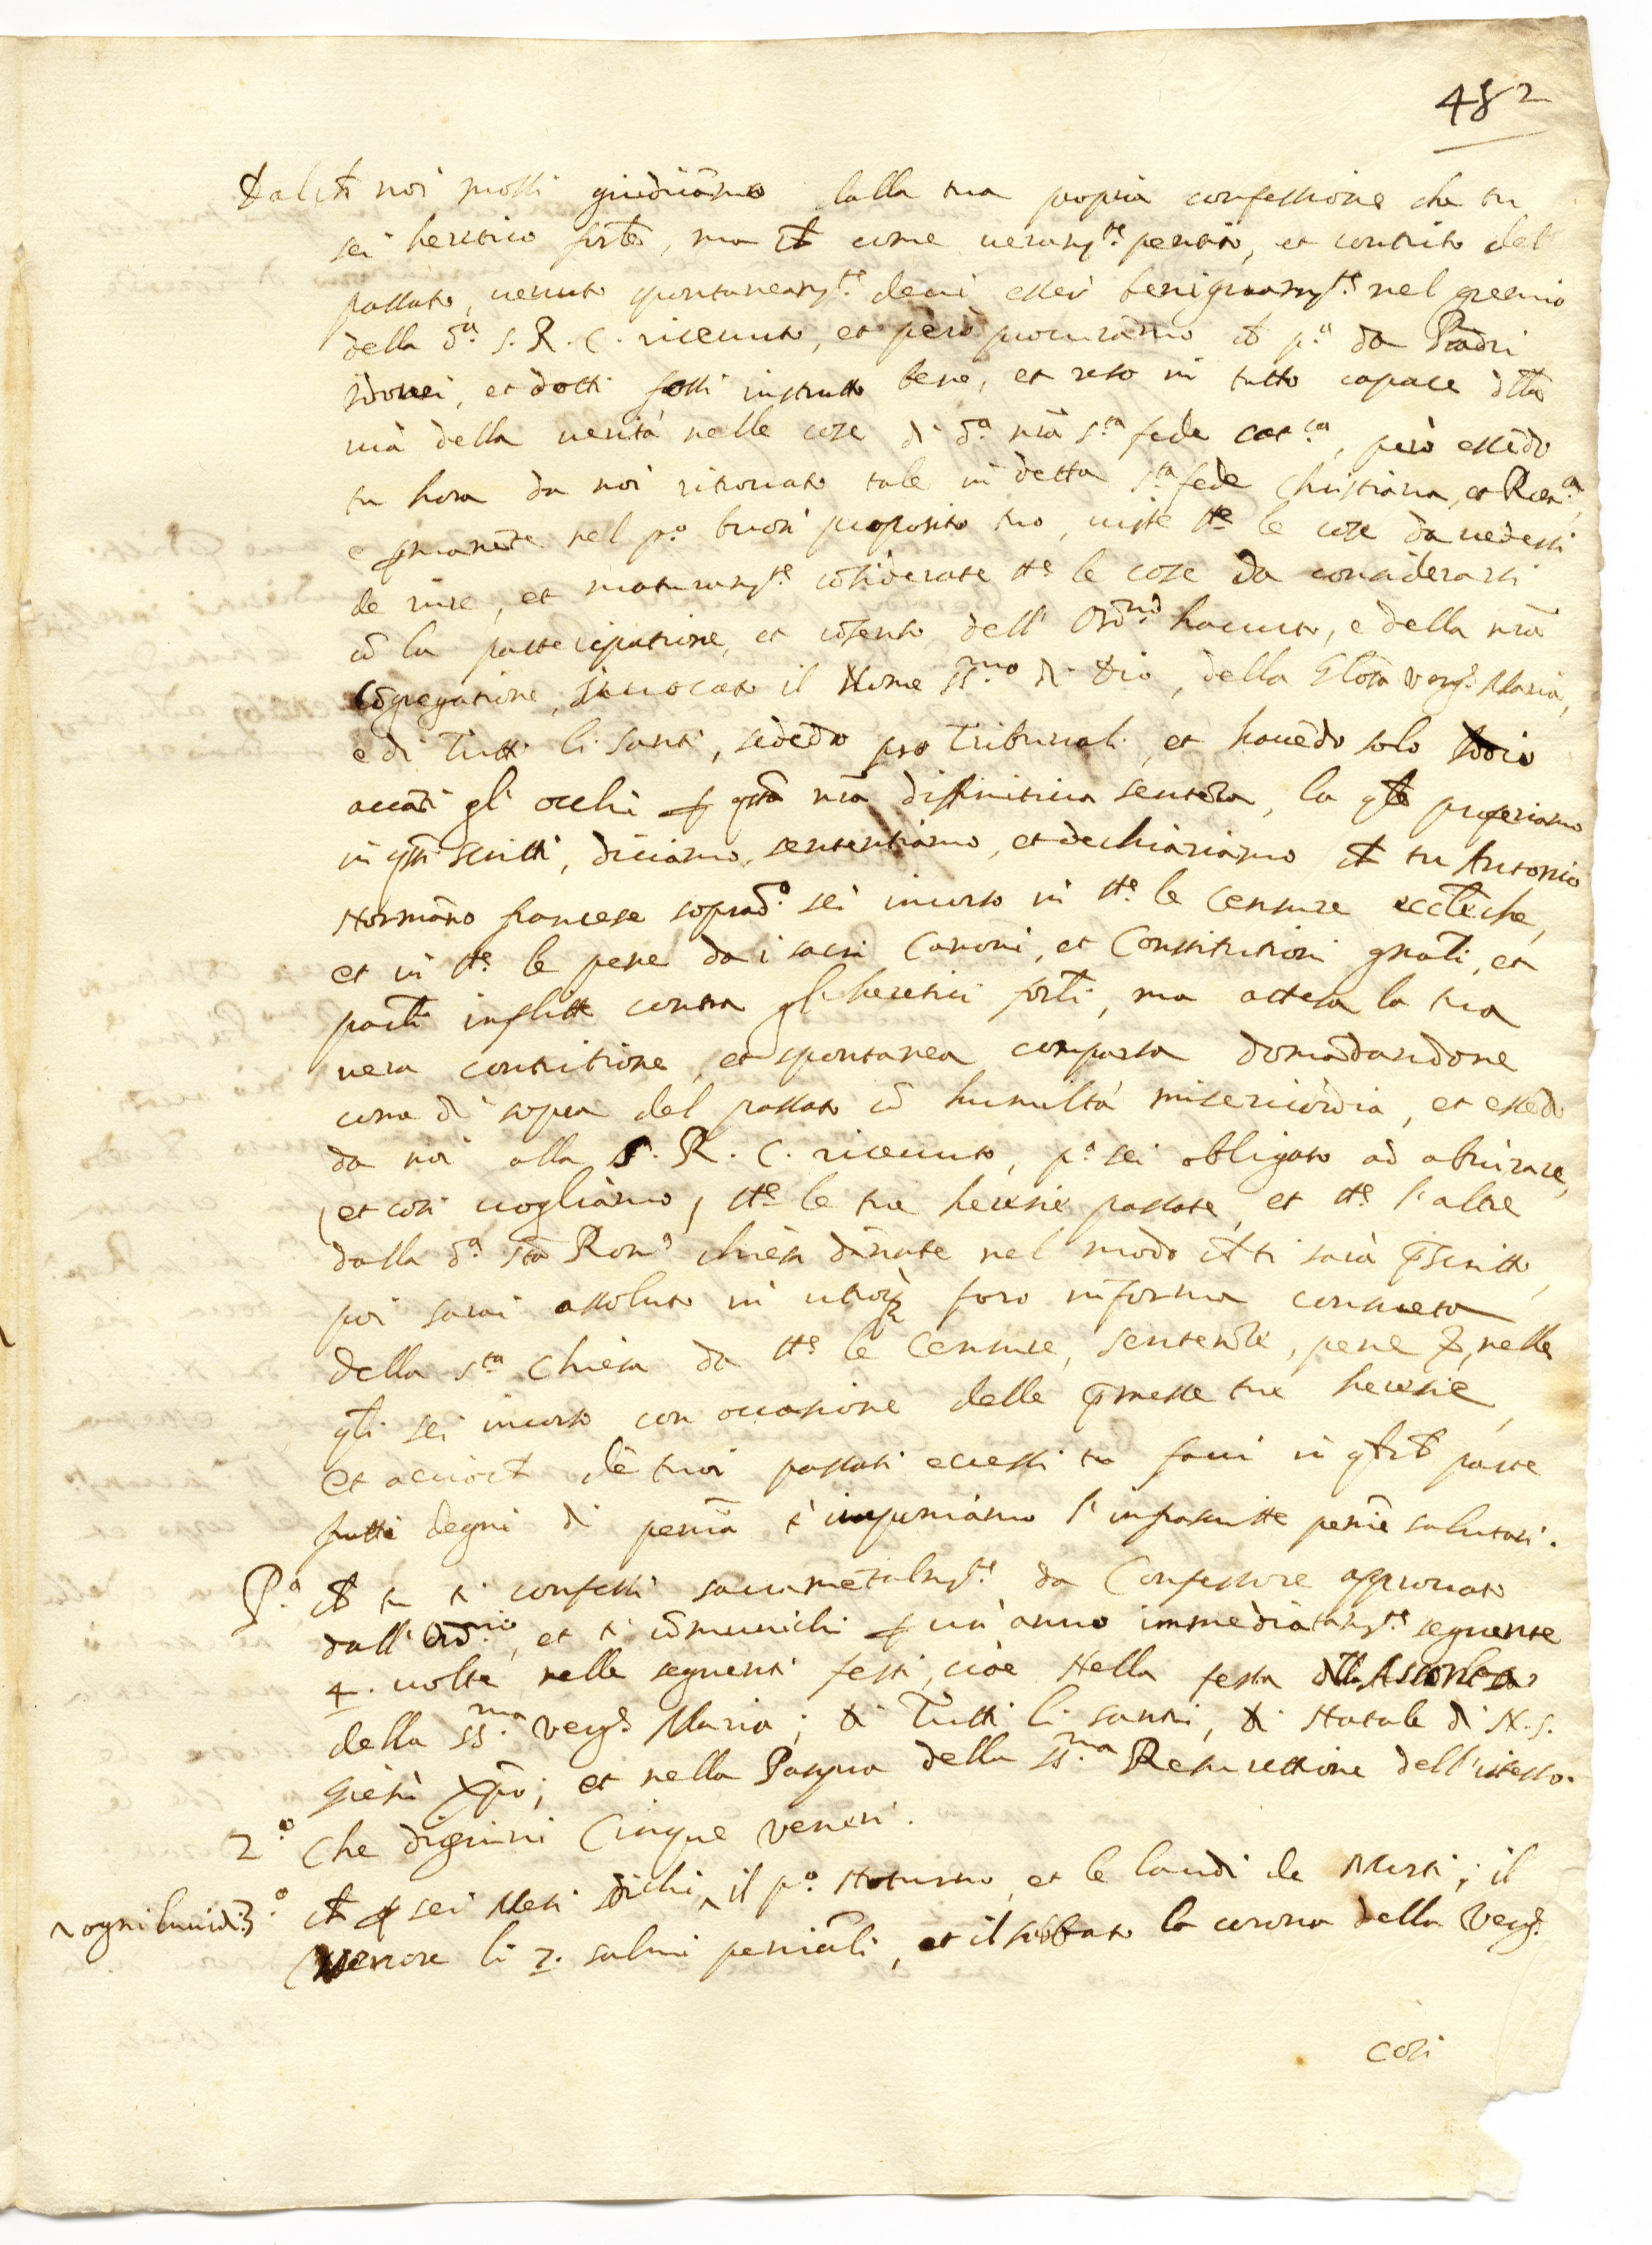 482
Dalch noi mossi giudicamo dalla tua propria confessione che tu
sei heretico formle, ma ch come veramte pentito, et contrito del
passato, venuto spontaneamte devi esser benignamte nel gremio
della da S. R. C. ricevuto, et però procuramo ch pa da Padri
idonei, et dotti fossi instrutto bene, et reso in tutto capace dlla
via della verità nelle cose di da nra sta fede catca, però essedo
tu hora da noi ritrovato tale in detta sta fede christiana, et Roma,
e pmanete nel po buon proposito tuo, viste tte le cose da vedersi
de iure, et maturamte cosiderate tte le cose da considerarsi
cō la partecipatione, et cosenso dell' Ordrio havuto, e della nra
Cōgregatione, invocato il Nome SSmo di Dio, della Glosa Verge Maria,
e di Tutti li santi, sedēdo pro Tribunali, et havēdo solo Iddio
avati gli occhi p qsta nra diffinitiva sentēza, la qle proferiamo
in qsti scritti, diciamo, sententiamo, et dechiariamo ch tu Antonio
Normāno francese soprado sei incorso in tte le censure eccleche,
et in tte le pene da i sacri Canoni, et Constitutioni gnali, et
parti inflitte contra gl' heretici formli, ma attesa la tua
vera contritione, et spontanea comparsa domādandone
come di sopra del passato cō humiltà misericordia, et essēdo
da noi alla S. R. C. ricevuto, pa sei obligato ad abiurare,
et cosi vogliamo, tte le tue heresie passate, et tte l'altre
dalla da sta Roma chiesa dānate nel modo ch ti sarà pscritto,
poi sarai assoluto in utroq foro in forma consueta
della sta Chiesa da tte le Censure, sentenze, pene &, nelle
qli sei incorso con occasione delle pmesse tue heresie,
et accioch de tuoi passati eccessi tu facci in qlche parte
frutti degni di penia t'imponiamo l'infrascritte penie salutari.
Pa ch tu ti confessi sacrametalmte da Confessore approvato
dall' Ordrio, et ti cōmunichi p un' anno immediatamte seguente
4. volte nelle seguenti festi, cioè Nella festa
della SSma Verge Maria; di Tutti li santi, di Natale di N. S.
Giesù Xpo; et nella Pasqua della SSma Resurettione dell' istesso.
2o Che digiuni Cinque Veneri.
3o ch p sei Mesi dichi ^ il po Notturno, et le laudi de Morti; il
^ ogni lunidi
Venere li 7. salmi peniali, et il sabbato la corona della Verge
cosi